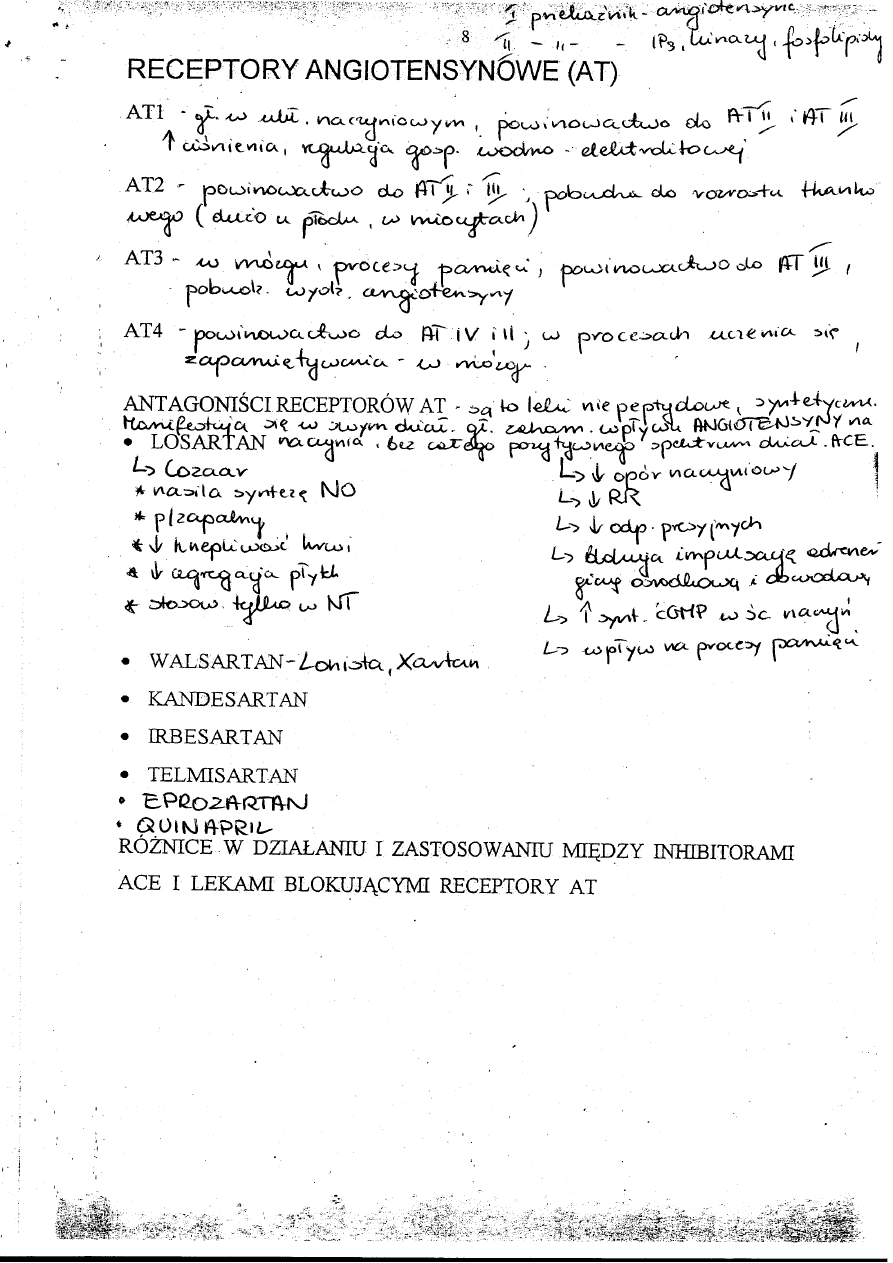 I przekaźnik - angiotensyna
8 II - 〃 - - IP3, kinazy, fosfolipidy
RECEPTORY ANGIOTENSYNOWE (AT)
AT1 - gł. w ukł. naczyniowym, powinowactwo do AT II i AT III
↑ ciśnienia, regulacja gosp. wodno - elektrolitowej
AT2 - powinowactwo do AT II i III ; pobudza do rozrostu tkanko
wego (dużo u płodu, w miocytach)
AT3 - w mózgu, procesy pamięci, powinowactwo do AT III,
pobudz. wydz. angiotensyny
AT4 - powinowactwo do AT IV i II ; w procesach uczenia się,
zapamiętywania - w mózgu.
ANTAGONIŚCI RECEPTORÓW AT - są to leki niepeptydowe, syntetyczne.
Manifestują się w swym dział. gł. zaham. wpływu ANGIOTENSYNY na
• LOSARTAN naczynia, bez całego pozytywnego spektrum dział. ACE.
↳ Cozaar
* nasila syntezę NO
* p/zapalny
* ↓ krzepliwość krwi
* ↓ agregacja płytk
* stosow. tylko w NT
↳ ↓ opór naczyniowy
↳ ↓ RR
↳ ↓ odp. presyjnych
↳ blokuja impulsację adrener
giczną ośrodkową i obwodową
↳ ↑ synt. cGMP w śc. naczyń
↳ wpływ na procesy pamięci
• WALSARTAN - Lorista, Xartan
• KANDESARTAN
• IRBESARTAN
• TELMISARTAN
• EPROZARTAN
• QUINAPRIL
RÓŻNICE W DZIAŁANIU I ZASTOSOWANIU MIĘDZY INHIBITORAMI
ACE I LEKAMI BLOKUJĄCYMI RECEPTORY AT